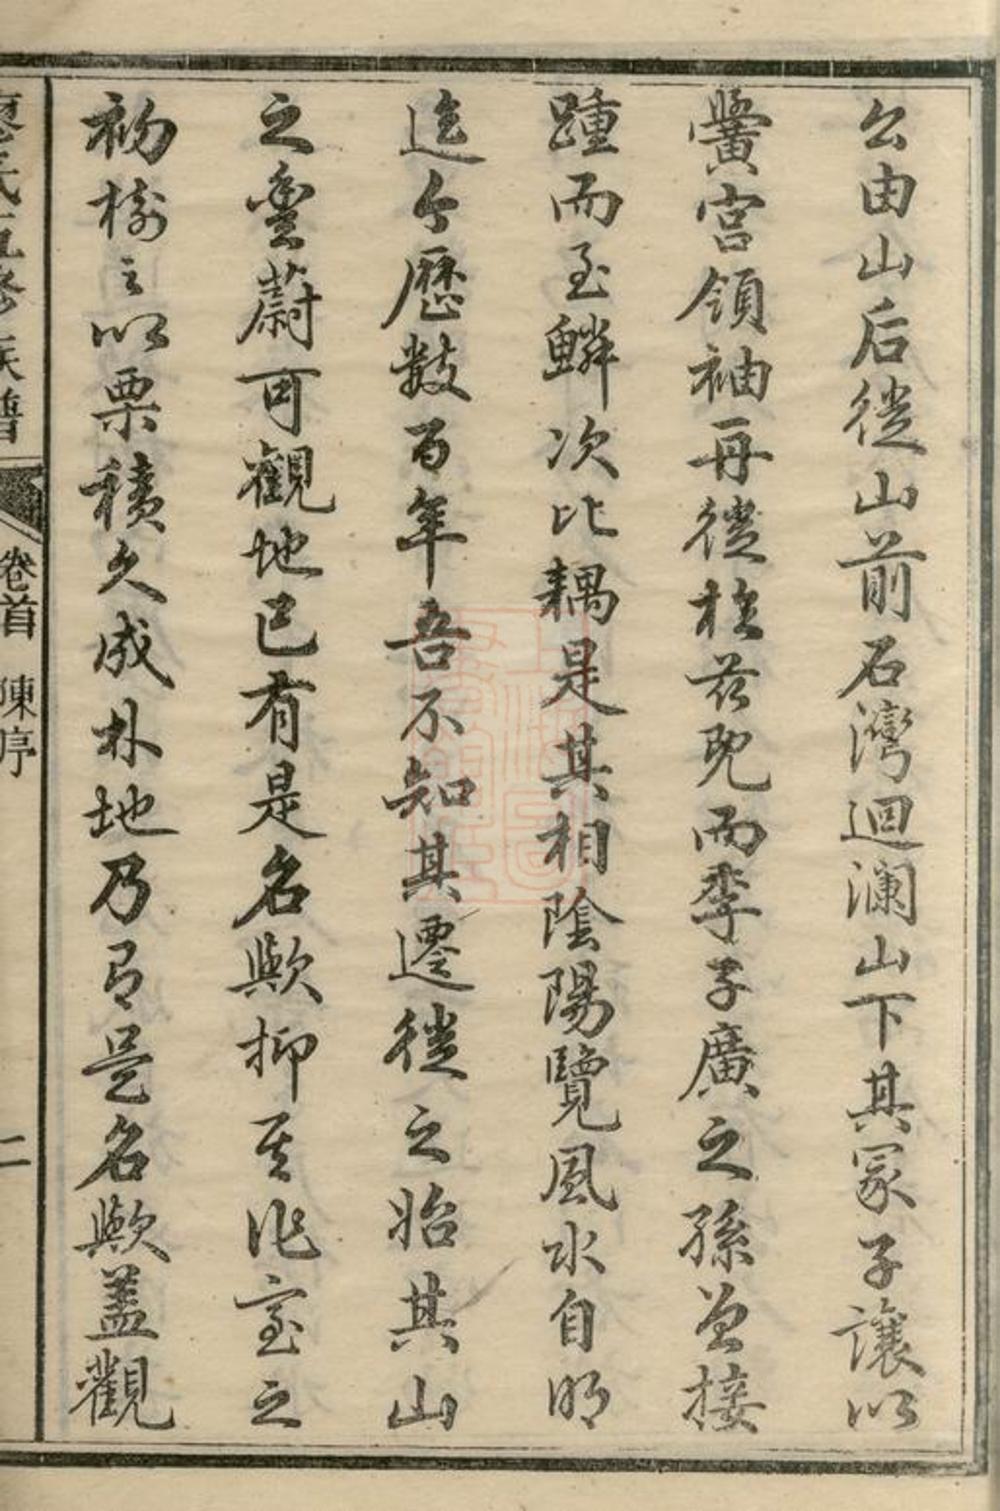 公由山后徙山前石灣迴瀾山下其冡子讓以
黌宮領袖再徙於茲既而季子廣之孫曾接
踵而至鱗次比耦是其相陰陽覽風水自明
迄今歷數百年吾不知其遷徙之始其山
之蔚可觀地已有是名歟抑其作室之
初樹之以栗積久成朴地乃有是名歟蓋觀
廖氏五修族譜
卷首 陳序
二